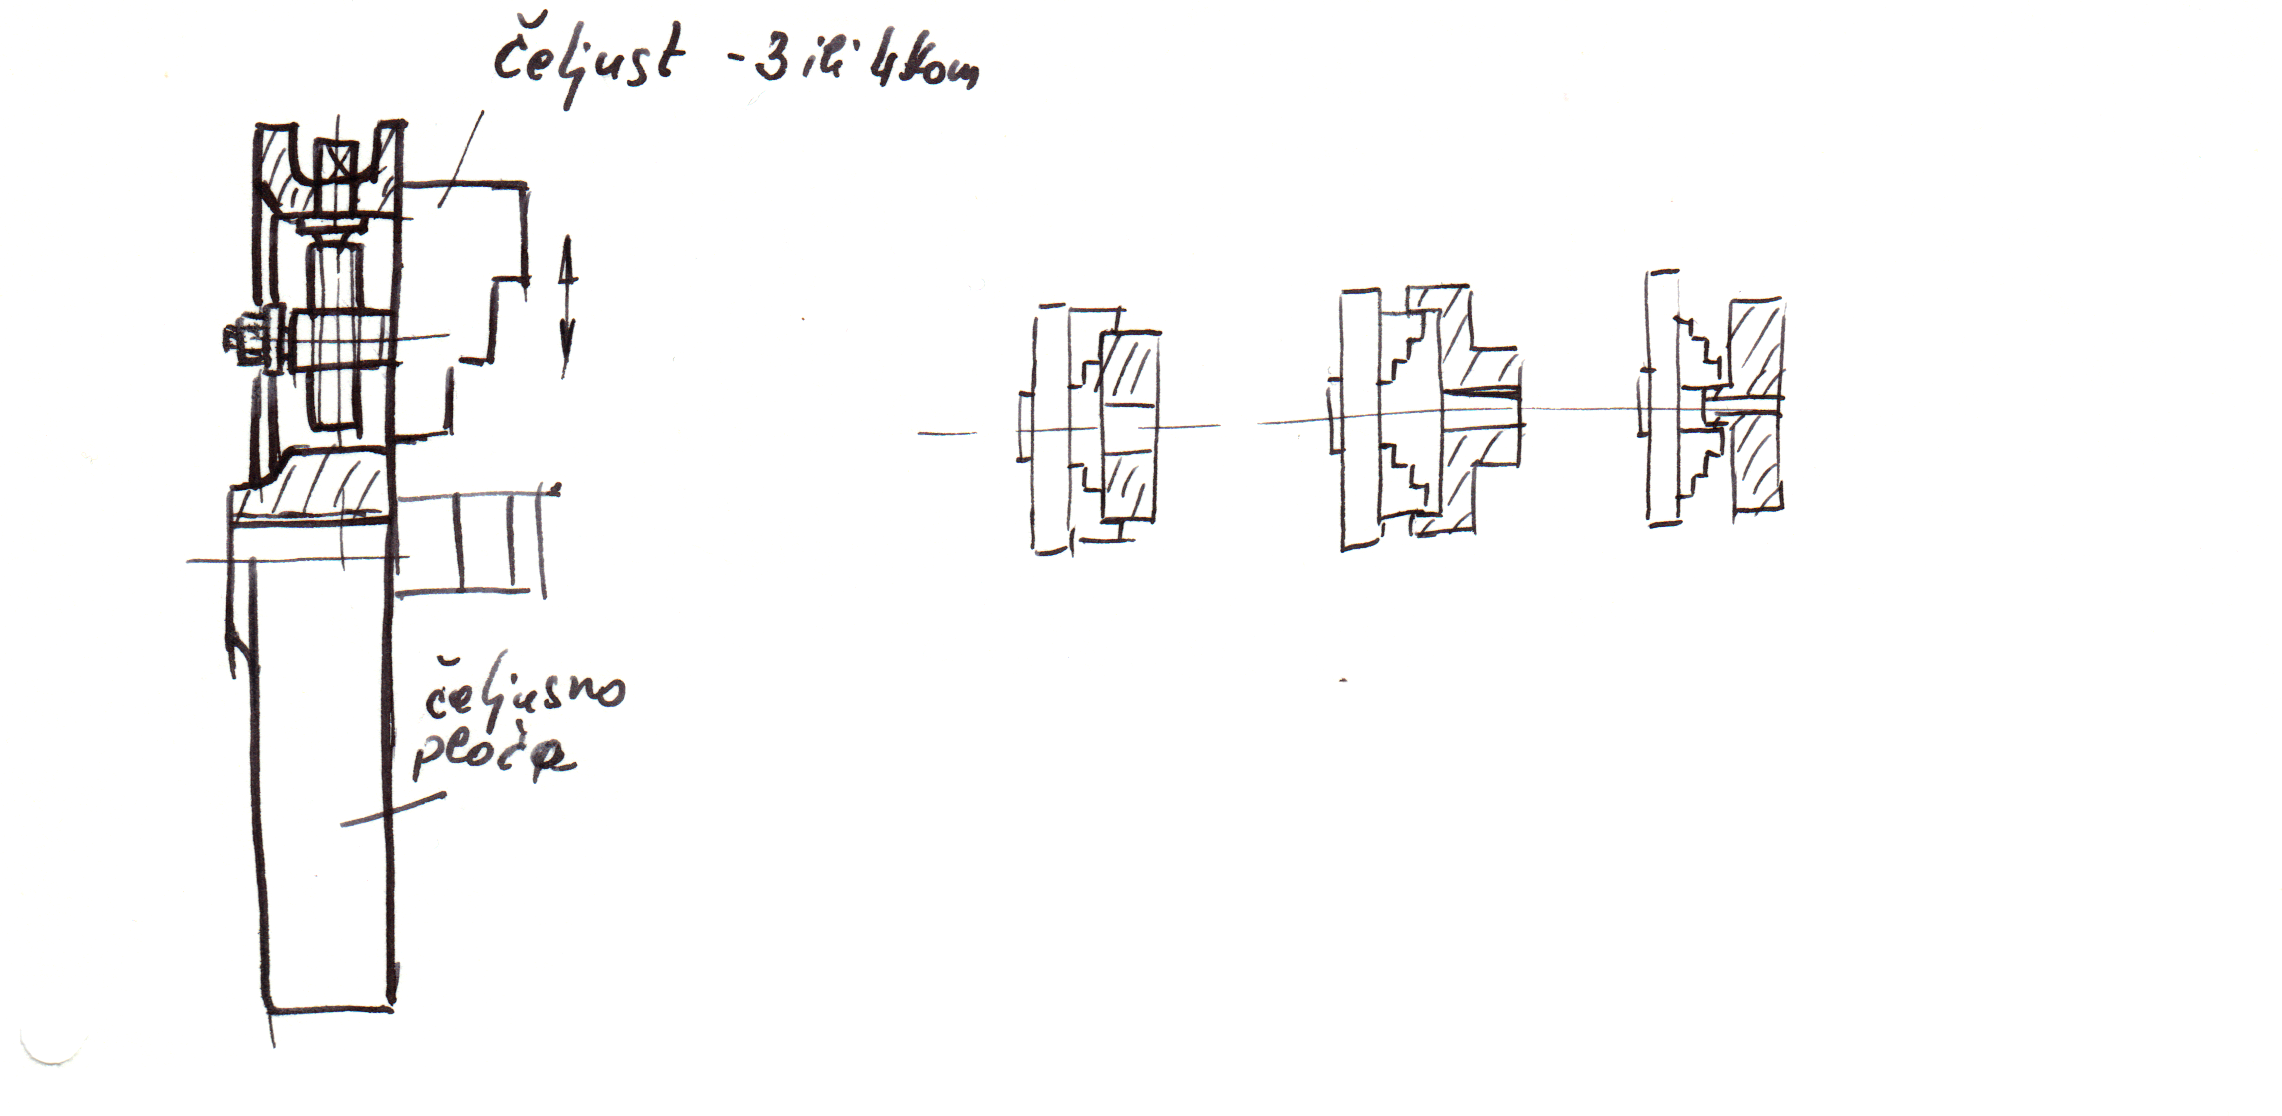 čeljust - 3 ili 4 kom
čeljusna
ploča